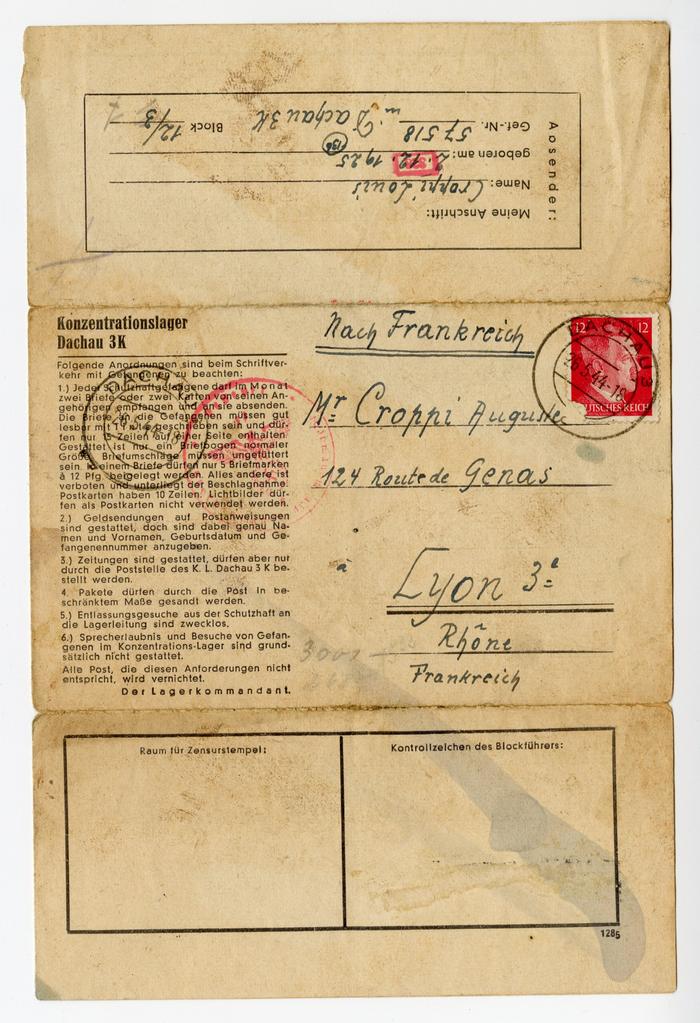 Absender:
Meine Anschrift:
Name: Croppi Louis
geboren am: 2.12.1925
Gef.-Nr. 57518
Dachau 3K
Block 12/3
Konzentrationslager
Dachau 3 K
Folgende Anordnungen sind beim Schriftver-
kehr mit Gefangenen zu beachten:
1.) Jeder Schutzhaftgefangene darf im Monat
zwei Briefe oder zwei Karten von seinen An-
gehörigen empfangen und an sie absenden.
Die Briefe an die Gefangenen müssen gut
lesbar mit Tinte geschrieben sein und dür-
fen nur 15 Zeilen auf einer Seite enthalten.
Gestattet ist nur ein Briefbogen normaler
Größe. Briefumschläge müssen ungefüttert
sein. In einem Briefe dürfen nur 5 Briefmarken
à 12 Pfg. beigelegt werden. Alles andere ist
verboten und unterliegt der Beschlagnahme.
Postkarten haben 10 Zeilen. Lichtbilder dür-
fen als Postkarten nicht verwendet werden.
2.) Geldsendungen auf Postanweisungen
sind gestattet, doch sind dabei genau Na-
men und Vornamen, Geburtsdatum und Ge-
fangenennummer anzugeben.
3.) Zeitungen sind gestattet, dürfen aber nur
durch die Poststelle des K. L. Dachau 3 K be-
stellt werden.
4. Pakete dürfen durch die Post in be-
schränktem Maße gesandt werden.
5.) Entlassungsgesuche aus der Schutzhaft an
die Lagerleitung sind zwecklos.
6.) Sprecherlaubnis und Besuche von Gefan-
genen im Konzentrations-Lager sind grund-
sätzlich nicht gestattet.
Alle Post, die diesen Anforderungen nicht
entspricht, wird vernichtet.
Der Lagerkommandant.
Nach Frankreich
12 12
DEUTSCHES REICH
DACHAU 3
Mr Croppi Auguste
124 Route de Genas
à
Lyon 3e
Rhône
Frankreich
Raum für Zensurstempel:
Kontrollzeichen des Blockführers:
1285